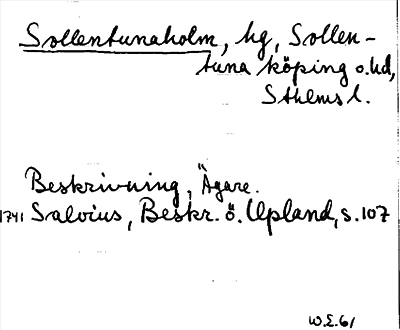 Sollentunaholm, hg, Sollen-
tuna köping o. hd,
Sthlms l.
Beskrivning, Ägare.
1741 Salvius, Beskr. ö. Upland, s. 107
W.E.61